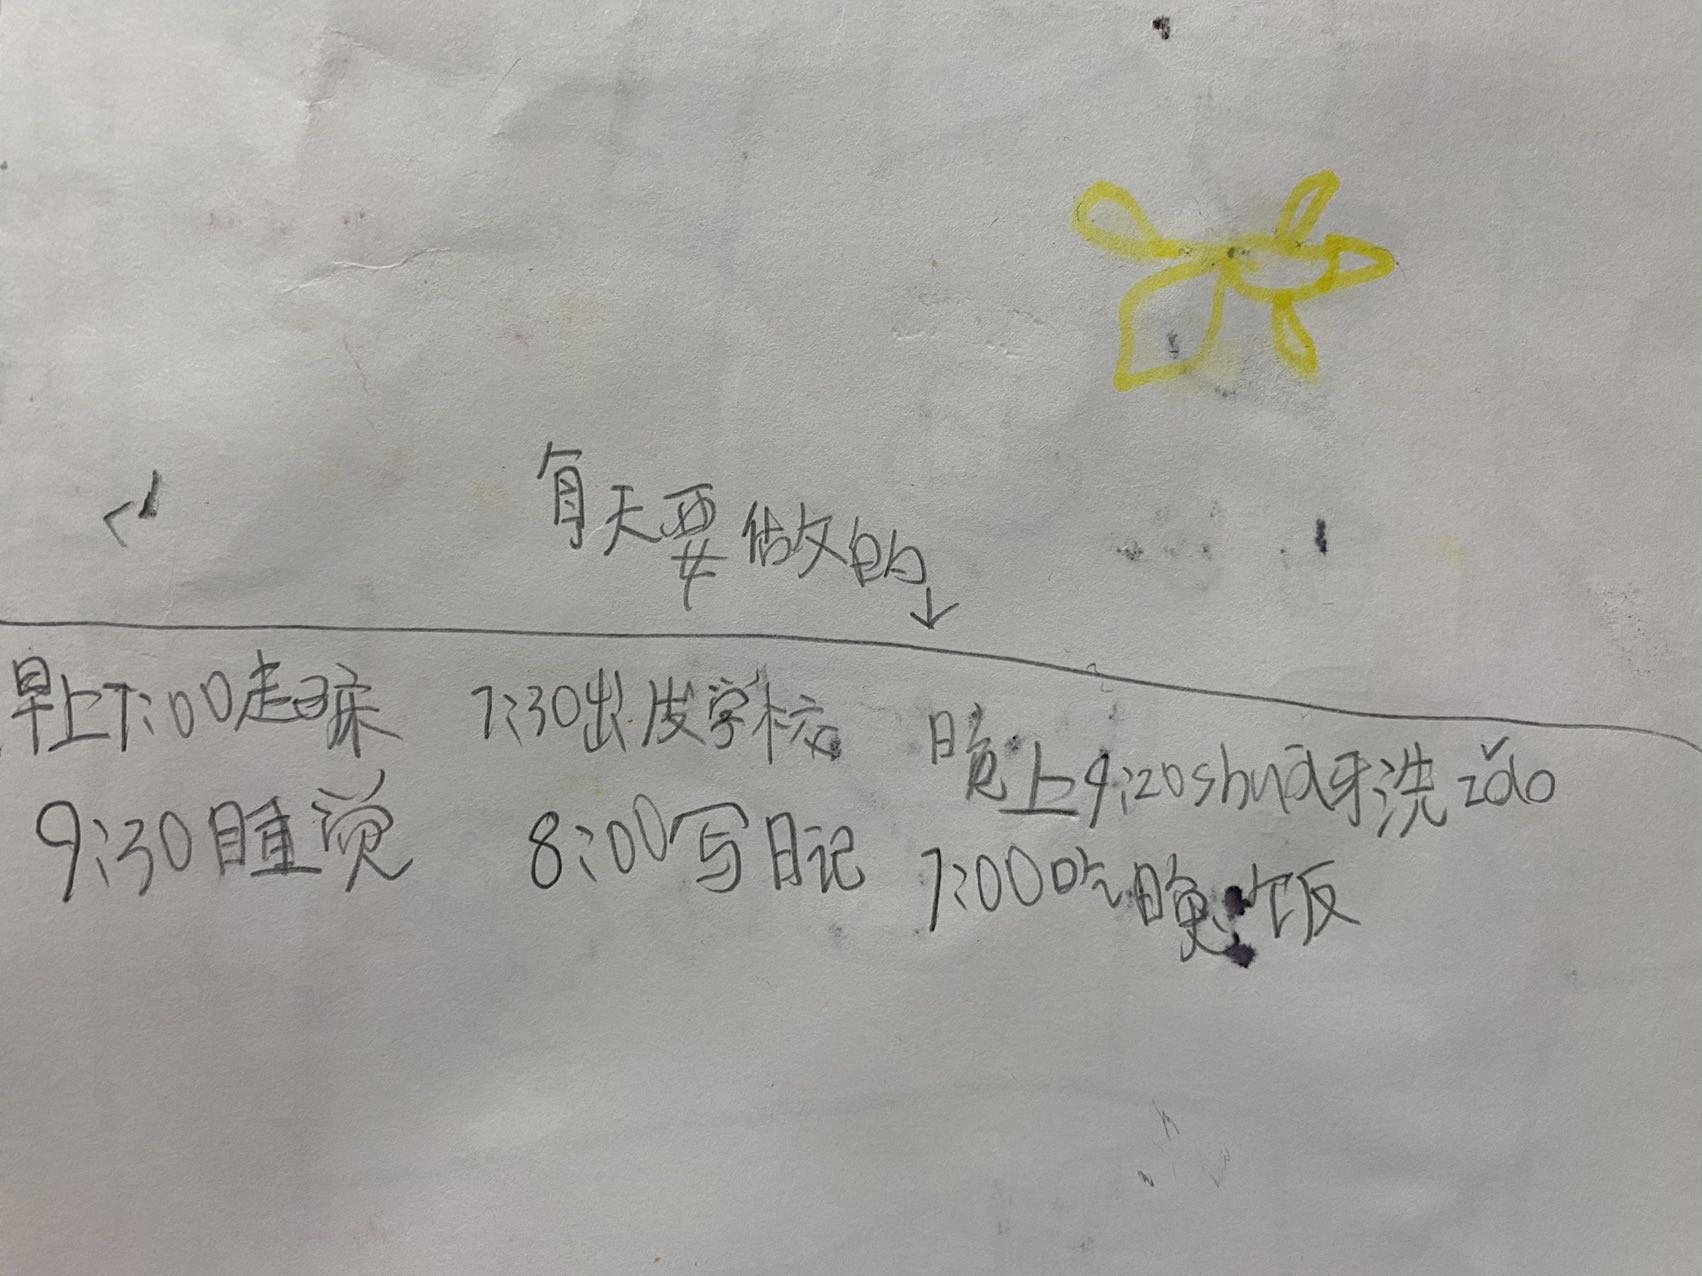 每天要做的↓
早上7:00起床 7:30出发学校 晚上9:20shuā牙洗zǎo
9:30睡觉 8:00写日记 7:00吃晚饭